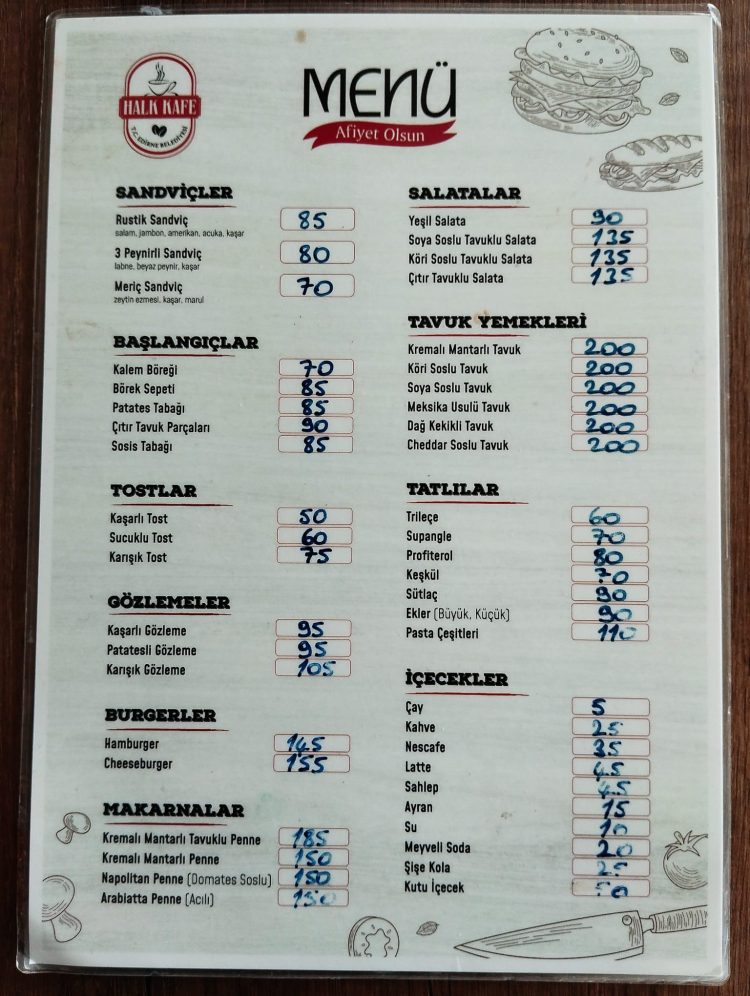 HALK KAFE
T.C. EDİRNE BELEDİYESİ
MENÜ
Afiyet Olsun
SANDVİÇLER
Rustik Sandviç 85
salam, jambon, amerikan, acuka, kaşar
3 Peynirli Sandviç 80
labne, beyaz peynir, kaşar
Meriç Sandviç 70
zeytin ezmesi, kaşar, marul
BAŞLANGIÇLAR
Kalem Böreği 70
Börek Sepeti 85
Patates Tabağı 85
Çıtır Tavuk Parçaları 90
Sosis Tabağı 85
TOSTLAR
Kaşarlı Tost 50
Sucuklu Tost 60
Karışık Tost 75
GÖZLEMELER
Kaşarlı Gözleme 95
Patatesli Gözleme 95
Karışık Gözleme 105
BURGERLER
Hamburger 145
Cheeseburger 155
MAKARNALAR
Kremalı Mantarlı Tavuklu Penne 185
Kremalı Mantarlı Penne 150
Napolitan Penne (Domates Soslu) 150
Arabiatta Penne (Acılı) 150
SALATALAR
Yeşil Salata 90
Soya Soslu Tavuklu Salata 135
Köri Soslu Tavuklu Salata 135
Çıtır Tavuklu Salata 135
TAVUK YEMEKLERİ
Kremalı Mantarlı Tavuk 200
Köri Soslu Tavuk 200
Soya Soslu Tavuk 200
Meksika Usulü Tavuk 200
Dağ Kekikli Tavuk 200
Cheddar Soslu Tavuk 200
TATLILAR
Trileçe 60
Supangle 70
Profiterol 80
Keşkül 70
Sütlaç 90
Ekler (Büyük, Küçük) 90
Pasta Çeşitleri 110
İÇECEKLER
Çay 5
Kahve 25
Nescafe 35
Latte 45
Sahlep 45
Ayran 15
Su 10
Meyveli Soda 20
Şişe Kola
Kutu İçecek